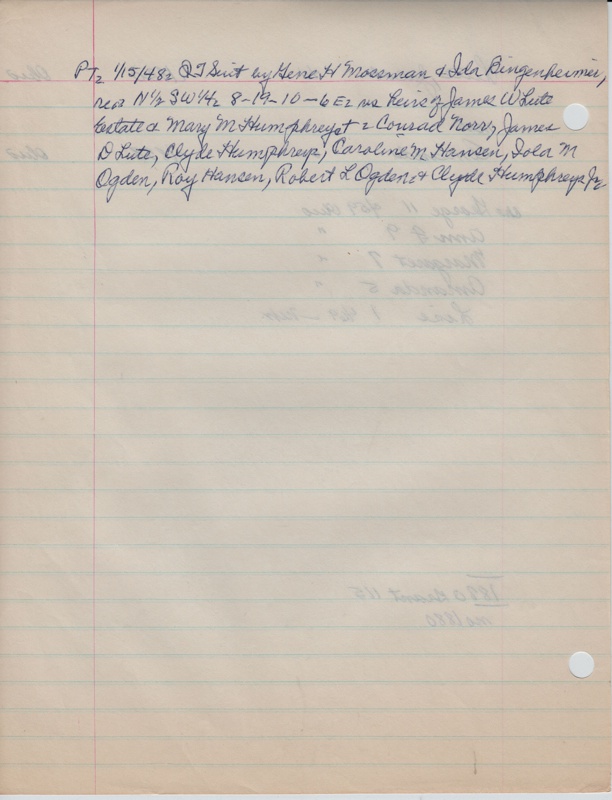 PT, 1/15/48, QT Suit by Gene H Mossman & Ida Bingenheimer,
re N½ SW¼, 8-19-10-6E, vs heirs of James W Lute
estate & Mary M Humphreys, & Conrad Norr, James
D Lute, Clyde Humphreys, Caroline M Hansen, Iola M
Ogden, Roy Hansen, Robert L Ogden, & Clyde Humphreys Jr,